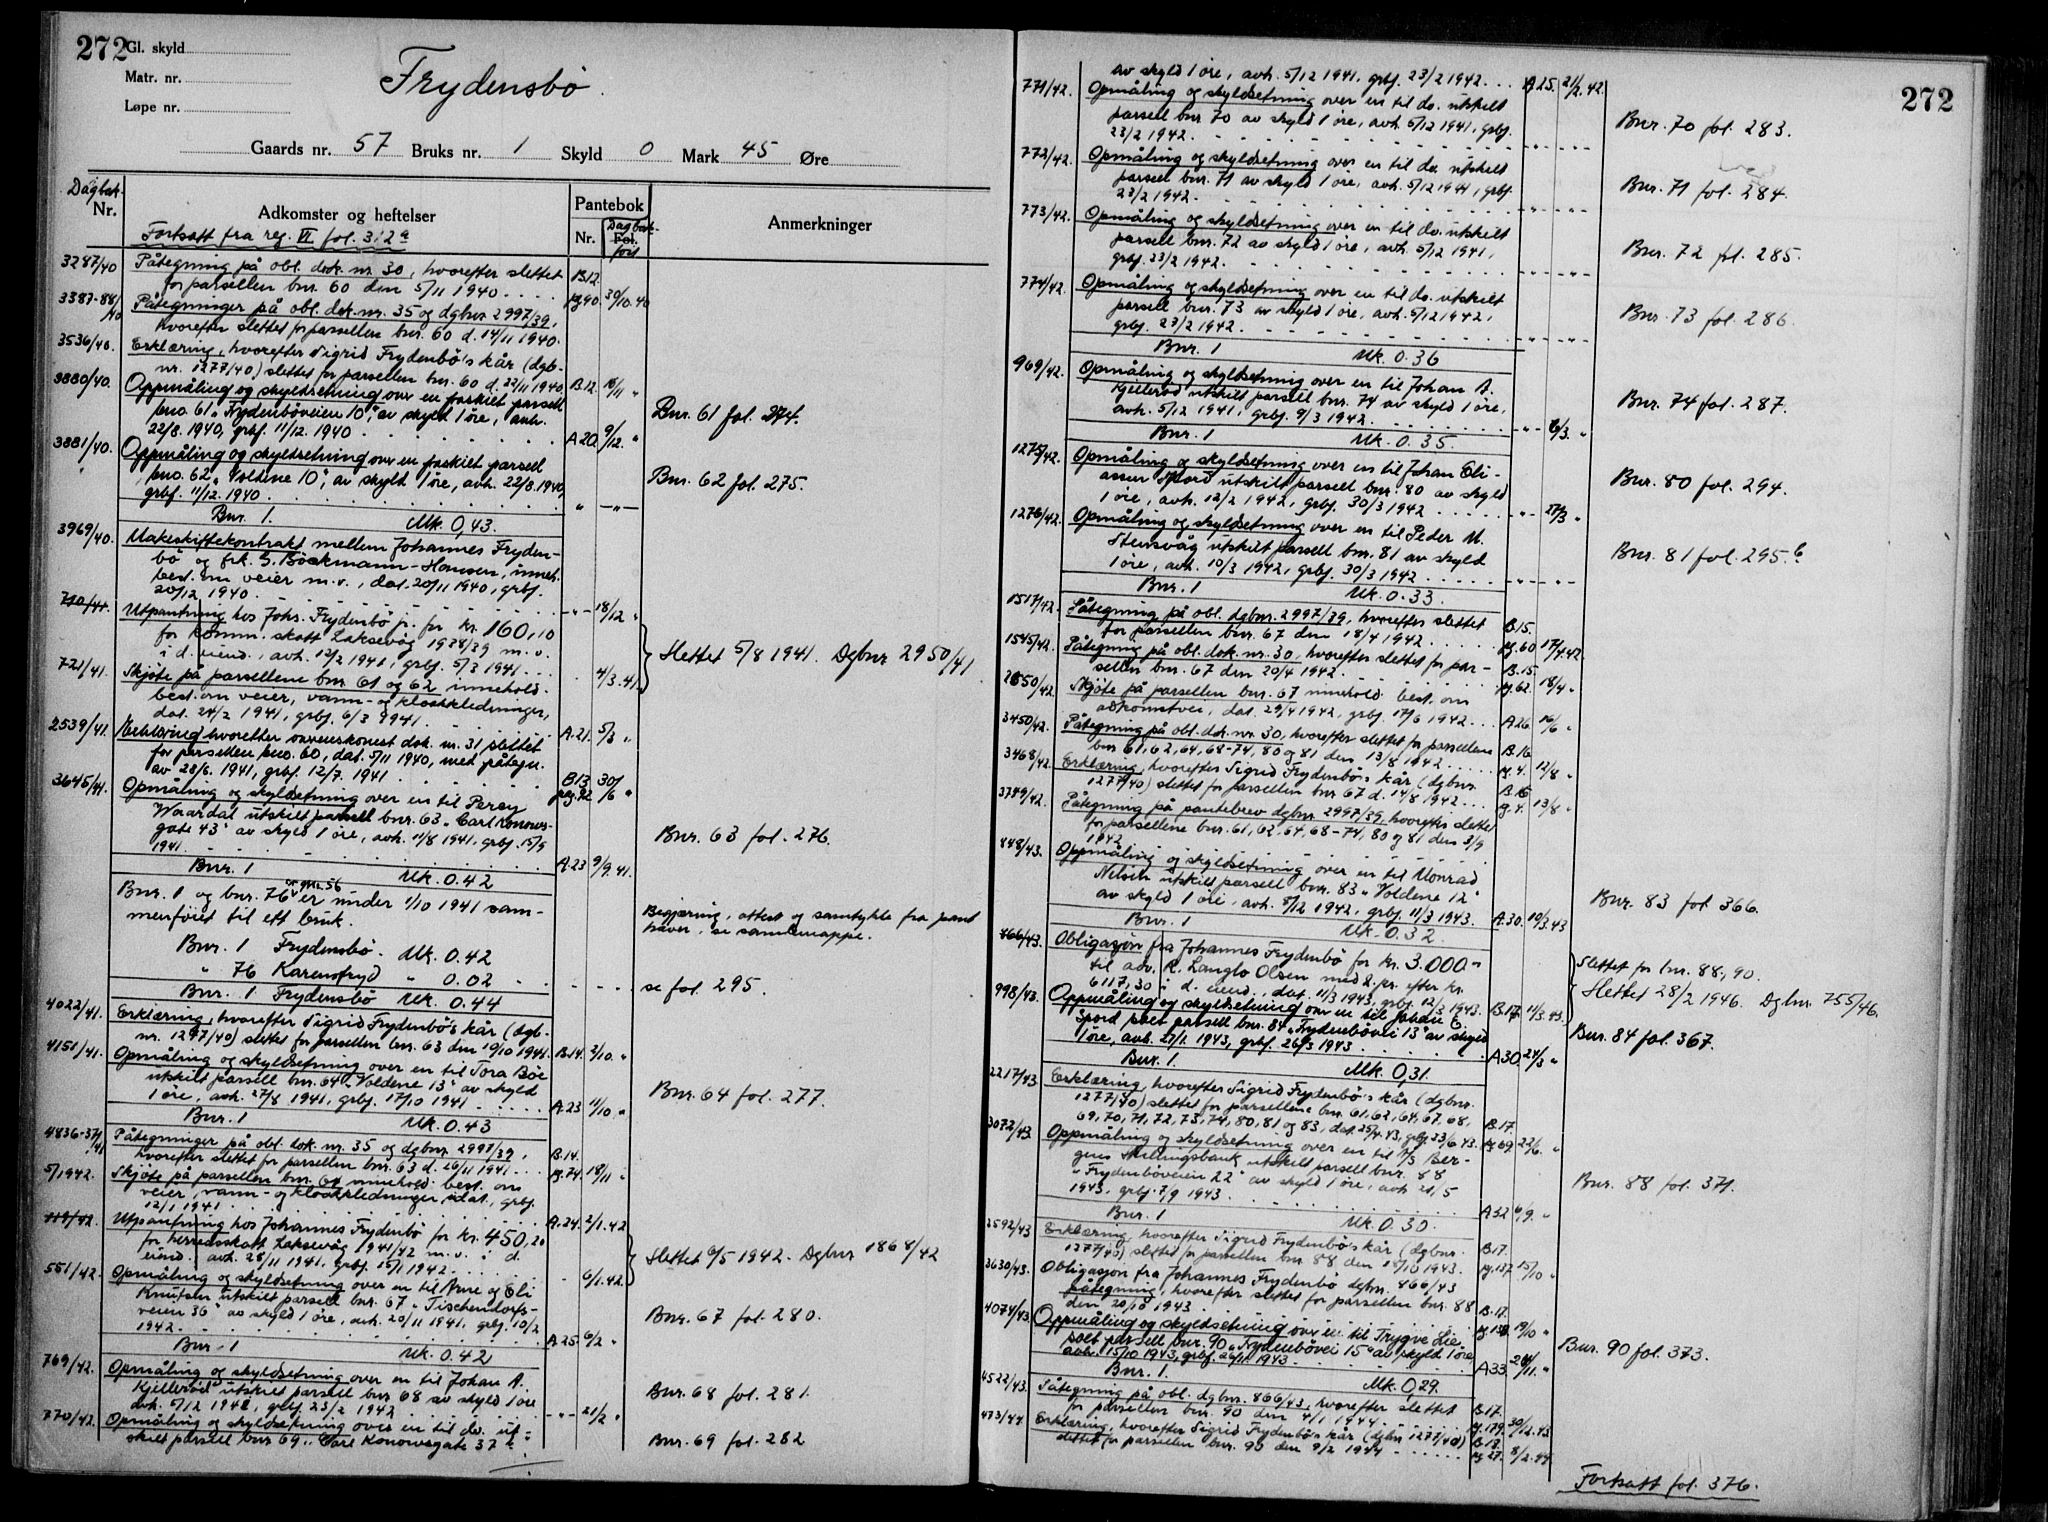 272
Gl. skyld
Matr. nr.
Løpe nr.
Frydensbö
Gaards nr. 57 Bruks nr. 1 Skyld 0 Mark 45 Øre
Dagbok-
Nr.
Adkomster og heftelser
Pantebok
Nr.
Fol.
Dagbok-
ført
Anmerkninger
Fortsatt fra reg. VI fol. 312a
3287/40 Påtegning på obl. dok. nr. 30, hvorefter slettet
for parsellen bnr. 60 den 5/11 1940 B.12. pg 90. 30/10.40
3387-88/40 Påtegninger på obl. dok. nr. 35 og dgbnr 2997/39,
hvorefter slettet for parsellen bnr. 60 d. 14/11 1940.
3536/40. Erklæring, hvorefter Sigrid Frydenbö's kår (dgb-
nr. 1277/40) slettet for parsellen bnr. 60 d. 22/11 1940. B.12. 16/11 "
3880/40. Oppmåling og skyldsetning over en fraskilt parsell
bno. 61 "Frydenböveien 10", av skyld 1 öre, avh.
22/8. 1940, grbf. 11/12. 1940 A 20. 9/12. " Bnr. 61 fol. 274.
3881/40. Oppmåling og skyldsetning over en fraskilt parsell
bno. 62 "Voldene 10", av skyld 1 öre, avh. 22/8. 1940,
grbf. 11/12. 1940 " — " — Bnr. 62 fol. 275.
Bnr. 1. Mk. 0,43.
3969/40. Makeskiftekontrakt mellem Johannes Fryden-
bö og frk. G. Böckmann-Hansen, inneh.
best. om veier m.v., dat. 20/11 1940, grbf.
20/12 1940 -"- 18/12 "
710/41. Utpantning hos Johs. Frydenbö jr. for kr. 160,10
for komm. skatt Laksevåg 1938/39 m.v.
i d. eiend., avh. 12/2 1941, grbf. 5/3 1941 4/3.41. Slettet 5/8 1941. Dgbnr 2950/41
721/41. Skjöte på parsellene bnr 61 og 62, innehold.
best. om veier, vann- og kloakkledninger,
dat. 24/2 1941, grbf. 6/3 1941. A.21. 5/3 "
2539/41. Erklæring hvorefter dok. nr. 31 slettet
for parsellen bno. 60, dat. 5/11 1940, med påtegn.
av 28/6. 1941, grbf. 12/7. 1941 B13 pag. 72 30/6 "
3645/41. Opmåling og skyldsetning over en til Percy
Waardal utskilt parsell bnr. 63 "Carl Konows-
gate 43" av skyld 1 öre, avh. 11/8 1941, grbf. 15/9
1941. A.23 9/9.41. Bnr. 63 fol. 276.
Bnr. 1 Mk. 0.42
Bnr. 1 og bnr. 76 av gnr. 56 er under 1/10 1941 sam-
menföiet til ett bruk. Begjæring, attest og samtykke fra pant
haver, se samlemappe.
Bnr. 1 Frydensbö. Mk. 0.42
" 76 Karensfryd " 0.02 se fol. 295.
Bnr. 1 Frydensbö Mk. 0.44
4022/41. Erklæring, hvorefter Sigrid Frydenbö's kår (dgb-
nr. 1297/40) slettet for parsellen bnr. 63 den 19/10 1941. B.14. 2/10. "
4151/41. Opmåling og skyldsetning over en til Tora Böe
utskilt parsell bnr. 64 "Voldene 13" av skyld
1 öre, avh. 27/8 1941, grbf. 17/10 1941 A.23 11/10 " Bnr. 64 fol. 277.
Bnr. 1 Mk. 0.43
4836-37/41 Påtegninger på obl. dok. nr. 35 og dgbnr 2997/39,
hvorefter slettet for parsellen bnr. 63 d. 26/11 1941 B.14. pg. 74. 18/11 "
5/1942. Skjöte på parsellen bnr. 64 innehold. best. om
veier, vann- og kloakkledninger, udat., grbf.
12/1 1941 A.24. 2/1.42
119/42. Utpantning hos Johannes Frydenbö for kr. 450,20
for herredsskatt Laksevåg 1941/42 m.v. i d.
eiend. avh. 28/11 1941. grbf. 15/1 1942 6/1.42. Slettet 6/5 1942. Dgbnr 1868/42
551/42. Opmåling og skyldsetning over en til Arne og Eli
Knutsen utskilt parsell bnr. 67 "Tischendorfs-
veien 36" av skyld 1 öre, avh. 20/11 1941, grbf. 10/2
1942 A.25. 6/2 " Bnr. 67 fol. 280.
Bnr. 1 Mk. 0.42
769/42. Opmåling og skyldsetning over en til Johan A.
Kjelleröd utskilt parsell bnr 68 av skyld 1 öre
avh. 5/12 1941, grbf. 23/2 1942 -"- 21/2 " Bnr. 68 fol. 281.
770/42. Opmåling og skyldsetning over en til do. ut-
skilt parsell bnr 69 "Carl Konowsgate 37" Bnr. 69 fol. 282
272
av skyld 1 öre, avh. 5/12 1941, grbf. 23/2 1942. A.25. 21/2.42.
771/42. Opmåling og skyldsetning over en til do. utskilt
parsell bnr 70 av skyld 1 öre, avh. 5/12 1941, grbf.
23/2 1942. Bnr. 70 fol. 283.
772/42. Opmåling og skyldsetning over en til do. utskilt
parsell bnr. 71 av skyld 1 öre, avh. 5/12 1941, grbf.
23/2 1942. Bnr. 71 fol. 284.
773/42. Opmåling og skyldsetning over en til do. utskilt
parsell bnr. 72 av skyld 1 öre, avh. 5/12 1941,
grbf. 23/2 1942. Bnr. 72 fol. 285.
774/42. Opmåling og skyldsetning over en til do. utskilt
parsell bnr. 73 av skyld 1 öre, avh. 5/12 1942,
grbf. 23/2 1942. Bnr. 73 fol. 286.
Bnr. 1 Mk. 0.36
969/42. Opmåling og skyldsetning over en til Johan A.
Kjelleröd utskilt parsell bnr. 74 av skyld 1 öre,
avh. 5/12 1941, grbf. 9/3 1942. -"- 6/3. " Bnr. 74 fol. 287.
Bnr. 1 Mk. 0.35.
1275/42. Opmåling og skyldsetning over en til Johan Eli-
assen Spord utskilt parsell bnr. 80 av skyld
1 öre, avh. 12/2 1942, grbf. 30/3 1942 -"- 27/3 " Bnr. 80 fol. 294.
1276/42. Opmåling og skyldsetning over en til Peder M.
Stensvåg utskilt parsell bnr. 81 av skyld
1 öre, avh. 10/3 1942, grbf. 30/3 1942 Bnr. 81 fol. 295.b
Bnr. 1 Mk. 0.33.
1517/42. Påtegning på obl. dgbnr. 2997/39, hvorefter slettet
for parsellen bnr. 67 den 18/4 1942 B.15. pg. 60 17/4.42.
1545/42. Påtegning på obl. dok. nr. 30, hvorefter slettet for par-
sellen bnr. 67 den 20/4 1942. B.15. pg. 62. 18/4 "
2650/42. Skjöte på parsellen bnr. 67 innehold. best. om
adkomstvei, dat. 29/4 1942, grbf. 17/6 1942 A.26. 16/6 "
3450/42. Påtegning på obl. dok. nr. 30, hvorefter slettet for parsellene
bnr 61, 62, 64, 68-74, 80 og 81 den 13/8 1942 B.16 pg. 4. 12/8 "
3468/42. Erklæring, hvorefter Sigrid Frydenbö's kår (dgbnr
1277/40) slettet for parsellen bnr. 67 d. 14/8 1942 B.16 pg. 4. 13/8 "
3749/42. Påtegning på pantebrev dgbnr 2997/39, hvorefter slettet
for parsellene bnr. 61, 62, 64, 68-74, 80 og 81 den 3/9
1942
848/43. Oppmåling og skyldsetning over en til Konrad
Nilsen utskilt parsell bnr. 83 "Voldene 12"
av skyld 1 öre, avh. 8/12 1942, grbf. 11/3 1943. A.30. 10/3.43 Bnr. 83 fol 366.
Bnr. 1 Mk. 0.32.
866/43. Obligasjon fra Johannes Frydenbö for kr. 3.000,-
til adv. R. Langlo Olsen med 2. pr. efter kr.
6117,30 i d. eiend., dat. 11/3 1943, grbf. 12/3 1943. B.17 11/3.43. Slettet for bnr. 88, 90.
Slettet 28/2 1946. Dgbnr 755/46.
998/43. Oppmåling og skyldsetning over en til Johan E.
Spord solt parsell bnr. 84 "Frydenbövei 13" av skyld
1 öre, avh. 27/1. 1943, grbf. 26/3 1943 A30. 24/3 " Bnr. 84 fol. 367.
Bnr. 1. Mk. 0,31.
2217/43 Erklæring, hvorefter Sigrid Frydenbö's kår (dgbnr.
1277/40) slettet for parsellene bnr. 61, 62, 64, 67, 68,
69, 70, 71, 72, 73, 74, 80, 81 og 83, dat. 25/4.43, grbf. 23/6.43. B.17. pg 69. 22/6. "
3072/43. Oppmåling og skyldsetning over en til A/S Ber-
gens Skillingsbank utskilt parsell bnr. 88
"Frydenböveien 22" av skyld 1 öre, avh 21/5
1943, grbf. 7/9 1943 A32 6/9. " Bnr. 88 fol. 371.
Bnr. 1 Mk. 0.30.
2592/43 Erklæring hvorefter Sigrid Frydenbö's kår (dgbnr.
1277/40) slettet for parsellen bnr 88 den 18/10 1943. B.17. pg. 137 15/10 "
3630/43. Obligasjon fra Johannes Frydenbö dgbnr. 866/43
påtegning, hvorefter slettet for parsellen bnr. 88
den 20/10 1943 B.17. pg. 138. 19/10 "
4074/43. Oppmåling og skyldsetning over en til Trygve Lie
solt parsell bnr. 90 "Frydenbövei 15" av skyld 1 öre
avh. 15/10 1943, grbf. 26/11 1943 A33. 24/11. " Bnr. 90 fol. 373.
Bnr. 1. Mk. 0,29.
4522/43. Påtegning på obl. dgbnr. 866/43, hvorefter slettet
for parsellen bnr. 90 den 4/1 1944 B.17. pg. 179. 30/12.43
473/44 Erklæring, hvorefter Sigrid Frydenbö's kår (dgbnr 1277/40)
slettet for parsellen bnr. 90 den 9/2 1944 B.18. pg 27. 8/2.44
Fortsatt fol. 376.